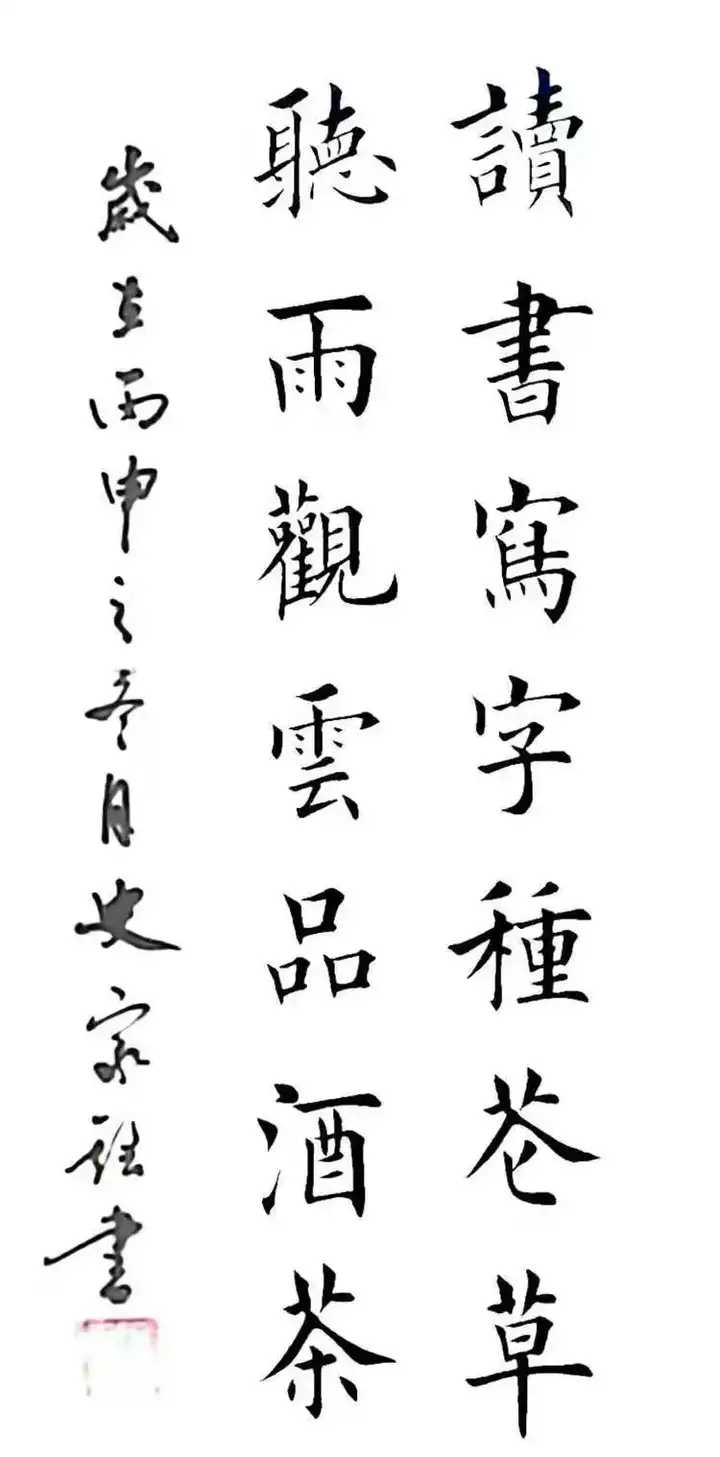 讀書寫字種花草
聽雨觀雲品酒茶
歲在丙申之冬月史家珍書